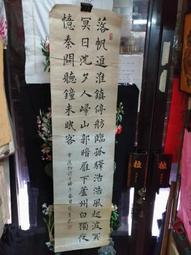 落帆逗淮鎮停舫臨孤驛浩浩風起波冥
冥日沈夕人歸山郭暗雁下蘆州白獨夜
憶秦關聽鐘未眠客